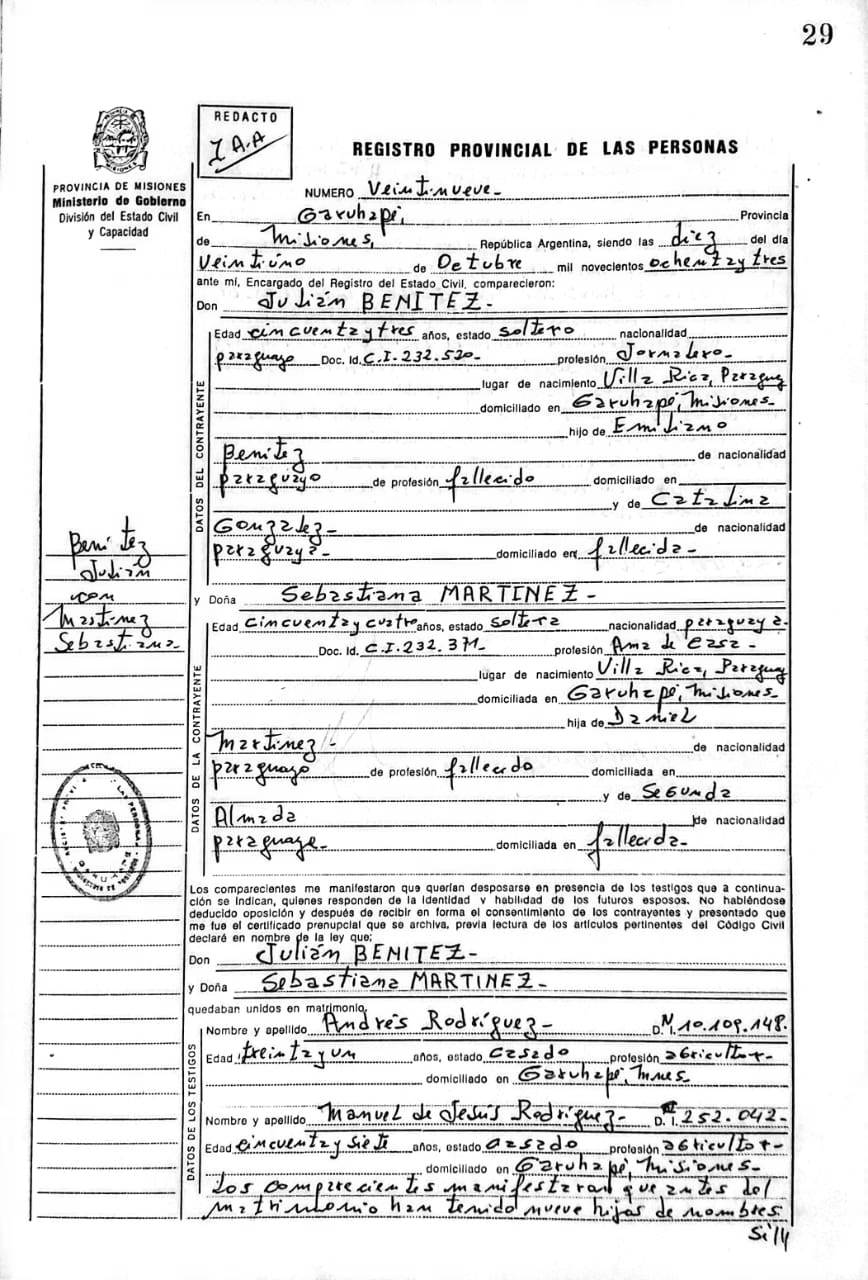 29
REDACTO
I A.A
REGISTRO PROVINCIAL DE LAS PERSONAS
PROVINCIA DE MISIONES
Ministerio de Gobierno
División del Estado Civil
y Capacidad
NUMERO Veintinueve-
En Garuhapé, Provincia
de Misiones, República Argentina, siendo las diez del día
Veintiúno de Octubre mil novecientos ochenta y tres
ante mí, Encargado del Registro del Estado Civil, comparecieron:
Don Julián BENITEZ-
DATOS DEL CONTRAYENTE
Edad cincuenta y tres años, estado soltero nacionalidad
paraguayo Doc. Id. C.I.232.520- profesión Jornalero-
lugar de nacimiento Villa Rica, Paraguay
domiciliado en Garuhapé, Misiones-
hijo de Emiliano
Benitez de nacionalidad
paraguayo de profesión fallecido domiciliado en
y de Catalina
Gonzalez- de nacionalidad
paraguaya- domiciliado en fallecida-
Benitez
Julián
con
Martinez
Sebastiana
y Doña Sebastiana MARTINEZ-
DATOS DE LA CONTRAYENTE
Edad cincuenta y cuatro años, estado soltera nacionalidad paraguaya-
Doc. Id. C.I.232.371- profesión Ama de Casa-
lugar de nacimiento Villa Rica, Paraguay
domiciliada en Garuhapé, Misiones-
hija de Daniel
Martinez- de nacionalidad
paraguayo de profesión fallecido domiciliada en
y de Segunda
Almada de nacionalidad
paraguaya- domiciliada en fallecida-
Los comparecientes me manifestaron que querían desposarse en presencia de los testigos que a continua-
ción se indican, quienes responden de la identidad y habilidad de los futuros esposos. No habléndose
deducido oposición y después de recibir en forma el consentimiento de los contrayentes y presentado que
me fue el certificado prenupcial que se archiva, previa lectura de los artículos pertinentes del Código Civil
declaré en nombre de la ley que;
Don Julián BENITEZ-
y Doña Sebastiana MARTINEZ-
quedaban unidos en matrimonio.
DATOS DE LOS TESTIGOS
Nombre y apellido Andrés Rodríguez- D.N.I. 10.109.148.
Edad treinta y un años, estado casado profesión agricultor-
domiciliado en Garuhapé, Mnes.
Nombre y apellido Manuel de Jesús Rodríguez- D. I. 252.042-
Edad cincuenta y siete años, estado casado profesión agricultor-
domiciliado en Garuhapé, Misiones-
Los comparecientes manifestaron que antes del
matrimonio han tenido nueve hijas de nombres